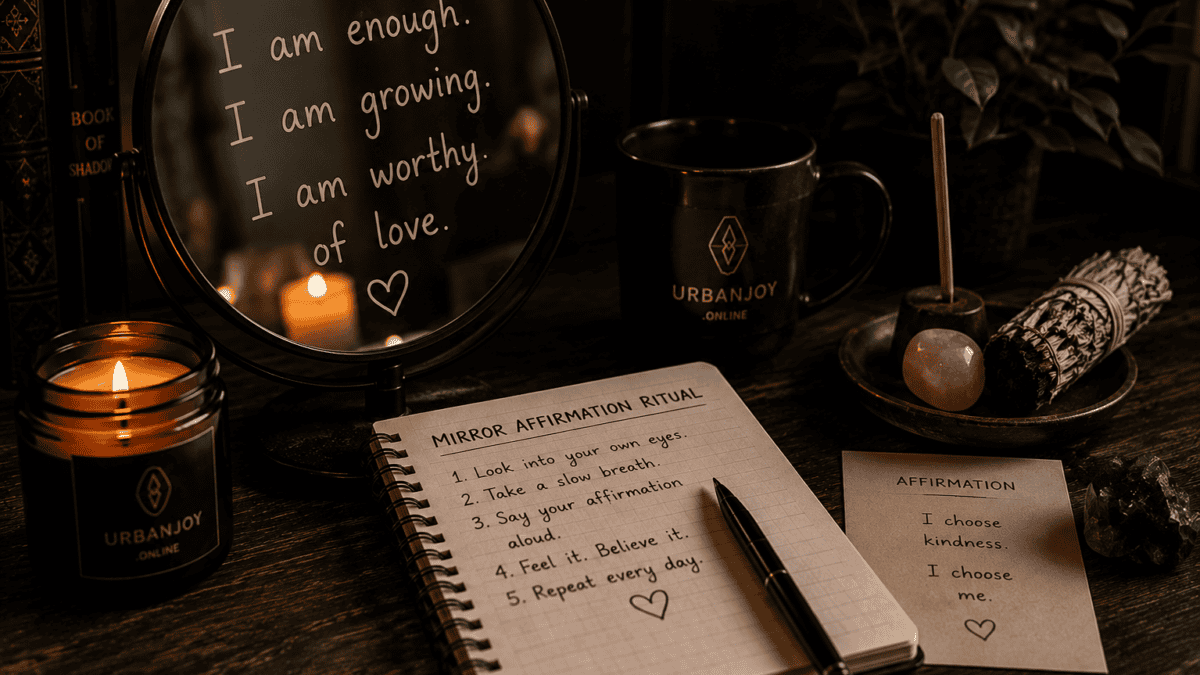 I am enough.
I am growing.
I am worthy.
of love.
BOOK
OF
URBANJOY
.ONLINE
URBANJOY
.ONLINE
MIRROR AFFIRMATION RITUAL
1. Look into your own eyes.
2. Take a slow breath.
3. Say your affirmation
aloud.
4. Feel it. Believe it.
5. Repeat every day.
AFFIRMATION
I choose
kindness.
I choose
me.